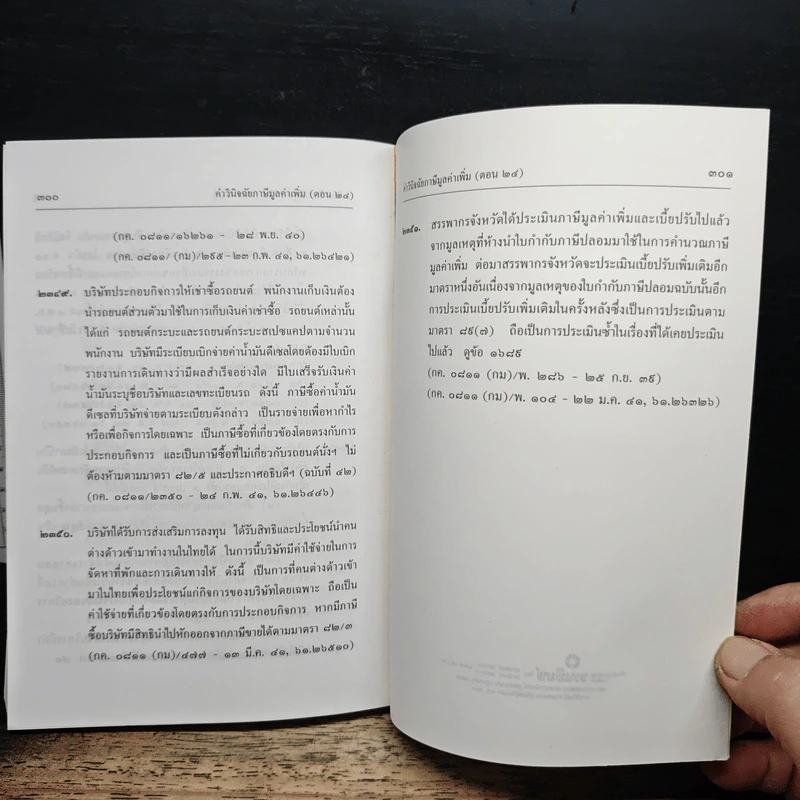 ๓๐๐ คำวินิจฉัยภาษีมูลค่าเพิ่ม (ตอน ๒๔)
(กค. ๐๘๑๑/๑๖๒๖๑ - ๒๘ พ.ย. ๔๐)
(กค. ๐๘๑๑/ (กม)/๒๙๕ - ๒๓ ก.พ. ๔๑, ๖๑.๒๖๔๒๑)
๒๓๔๙. บริษัทประกอบกิจการให้เช่าซื้อรถยนต์ พนักงานเก็บเงินต้อง
นำรถยนต์ส่วนตัวมาใช้ในการเก็บเงินค่าเช่าซื้อ รถยนต์เหล่านั้น
ได้แก่ รถยนต์กระบะและรถยนต์กระบะสเปซแคปตามจำนวน
พนักงาน บริษัทมีระเบียบเบิกจ่ายค่าน้ำมันดีเซลโดยต้องมีใบเบิก
รายงานการเดินทางว่ามีผลสำเร็จอย่างใด มีใบเสร็จรับเงินค่า
น้ำมันระบุชื่อบริษัทและเลขทะเบียนรถ ดังนี้ ภาษีซื้อค่าน้ำมัน
ดีเซลที่บริษัทจ่ายตามระเบียบดังกล่าว เป็นรายจ่ายเพื่อหากำไร
หรือเพื่อกิจการโดยเฉพาะ เป็นภาษีซื้อที่เกี่ยวข้องโดยตรงกับการ
ประกอบกิจการ และเป็นภาษีซื้อที่ไม่เกี่ยวกับรถยนต์นั่งฯ ไม่
ต้องห้ามตามมาตรา ๘๒/๕ และประกาศอธิบดีฯ (ฉบับที่ ๔๒)
(กค. ๐๘๑๑/๒๓๕๐ - ๒๔ ก.พ. ๔๑, ๖๑.๒๖๔๔๖)
๒๓๕๐. บริษัทได้รับการส่งเสริมการลงทุน ได้รับสิทธิและประโยชน์นำคน
ต่างด้าวเข้ามาทำงานในไทยได้ ในการนี้บริษัทมีค่าใช้จ่ายในการ
จัดหาที่พักและการเดินทางให้ ดังนี้ เป็นการที่คนต่างด้าวเข้า
มาในไทยเพื่อประโยชน์แก่กิจการของบริษัทโดยเฉพาะ ถือเป็น
ค่าใช้จ่ายที่เกี่ยวข้องโดยตรงกับการประกอบกิจการ หากมีภาษี
ซื้อบริษัทมีสิทธินำไปหักออกจากภาษีขายได้ตามมาตรา ๘๒/๓
(กค. ๐๘๑๑ (กม)/๔๗๗ - ๑๓ มี.ค. ๔๑, ๖๑.๒๖๕๑๐)
คำวินิจฉัยภาษีมูลค่าเพิ่ม (ตอน ๒๔) ๓๐๑
๒๓๕๑. สรรพากรจังหวัดได้ประเมินภาษีมูลค่าเพิ่มและเบี้ยปรับไปแล้ว
จากมูลเหตุที่ห้างนำใบกำกับภาษีปลอมมาใช้ในการคำนวณภาษี
มูลค่าเพิ่ม ต่อมาสรรพากรจังหวัดจะประเมินเบี้ยปรับเพิ่มเติมอีก
มาตราหนึ่งอันเนื่องจากมูลเหตุของใบกำกับภาษีปลอมฉบับนั้นอีก
การประเมินเบี้ยปรับเพิ่มเติมในครั้งหลังซึ่งเป็นการประเมินตาม
มาตรา ๘๙(๗) ถือเป็นการประเมินซ้ำในเรื่องที่ได้เคยประเมิน
ไปแล้ว ดูข้อ ๑๖๘๙
(กค. ๐๘๑๑ (กม)/พ. ๒๘๖ - ๒๕ ก.ย. ๓๙)
(กค. ๐๘๑๑ (กม)/พ. ๑๐๔ - ๒๒ ม.ค. ๔๑, ๖๑.๒๖๓๒๖)